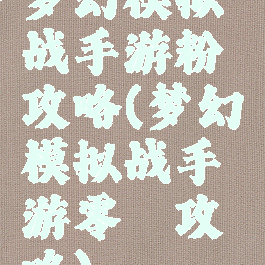 梦幻模拟
战手游粉
攻略(梦幻
模拟战手
游零 攻
略)